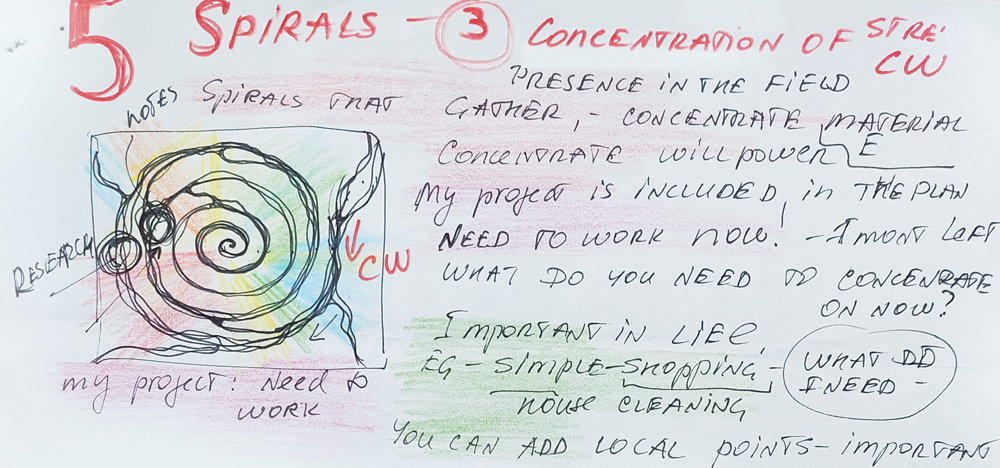 5 SPIRALS - 3 CONCENTRATION OF STRE'
CW
PRESENCE IN THE FIELD
NOTES SPIRALS THAT GATHER, - CONCENTRATE MATERIAL
CONCENTRATE WILLPOWER E
MY PROJECT IS INCLUDED, IN THE PLAN
NEED TO WORK NOW! - 1 MONT LEFT
RESEARCH
CW
WHAT DO YOU NEED TO CONCENRATE
ON NOW?
IMPORTANT IN LIFE,
EG - SIMPLE - SHOPPING -
WHAT DO
I NEED -
HOUSE CLEANING
my project: Need to
WORK
YOU CAN ADD LOCAL POINTS - IMPORTANT